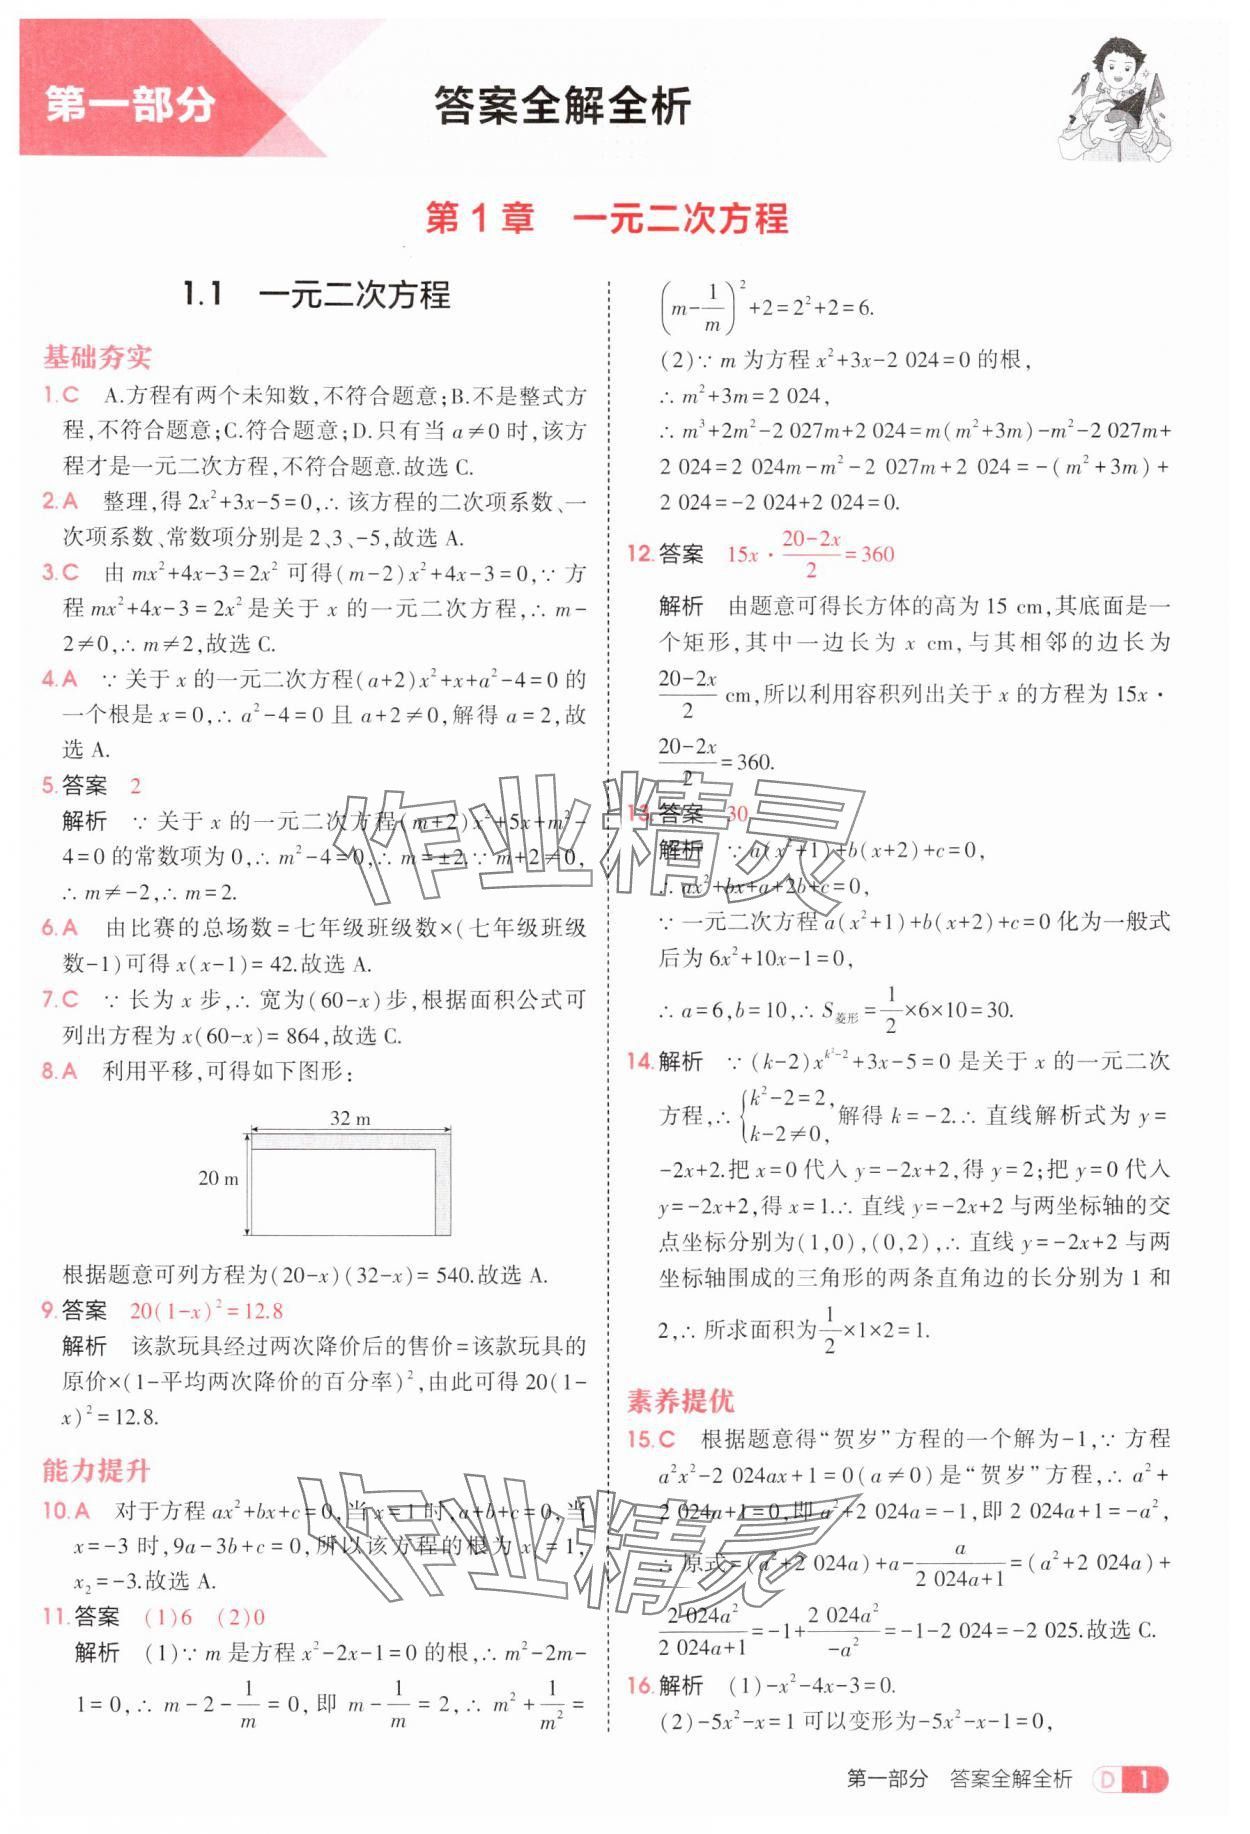 第一部分
答案全解全析
第1章 一元二次方程
1.1 一元二次方程
基础夯实
1.C A.方程有两个未知数,不符合题意;B.不是整式方
程,不符合题意;C.符合题意;D.只有当 a≠0 时,该方
程才是一元二次方程,不符合题意.故选 C.
2.A 整理,得 2x²+3x-5=0,∴ 该方程的二次项系数、一
次项系数、常数项分别是 2、3、-5,故选 A.
3.C 由 mx²+4x-3=2x² 可得(m-2)x²+4x-3=0,∵ 方
程 mx²+4x-3=2x² 是关于 x 的一元二次方程,∴ m-
2≠0,∴ m≠2,故选 C.
4.A ∵ 关于 x 的一元二次方程(a+2)x²+x+a²-4=0 的
一个根是 x=0,∴ a²-4=0 且 a+2≠0,解得 a=2,故
选 A.
5.答案 2
解析 ∵ 关于 x 的一元二次方程(m+2)x²+5x+m²-
4=0 的常数项为 0,∴ m²-4=0,∴ m=±2.∵ m+2≠0,
∴ m≠-2,∴ m=2.
6.A 由比赛的总场数=七年级班级数×(七年级班级
数-1)可得 x(x-1)=42.故选 A.
7.C ∵ 长为 x 步,∴ 宽为(60-x)步,根据面积公式可
列出方程为 x(60-x)=864,故选 C.
8.A 利用平移,可得如下图形:
32 m
20 m
根据题意可列方程为(20-x)(32-x)=540.故选 A.
9.答案 20(1-x)²=12.8
解析 该款玩具经过两次降价后的售价=该款玩具的
原价×(1-平均两次降价的百分率)²,由此可得 20(1-
x)²=12.8.
能力提升
10.A 对于方程 ax²+bx+c=0,当 x=1 时,a+b+c=0,当
x=-3 时,9a-3b+c=0,所以该方程的根为 x₁=1,
x₂=-3.故选 A.
11.答案 (1)6 (2)0
解析 (1)∵ m 是方程 x²-2x-1=0 的根,∴ m²-2m-
1=0,∴ m-2-1/m=0,即 m-1/m=2,∴ m²+1/m²=
(m-1/m)²+2=2²+2=6.
(2)∵ m 为方程 x²+3x-2 024=0 的根,
∴ m²+3m=2 024,
∴ m³+2m²-2 027m+2 024=m(m²+3m)-m²-2 027m+
2 024=2 024m-m²-2 027m+2 024=-(m²+3m)+
2 024=-2 024+2 024=0.
12.答案 15x·(20-2x)/2=360
解析 由题意可得长方体的高为 15 cm,其底面是一
个矩形,其中一边长为 x cm,与其相邻的边长为
(20-2x)/2 cm,所以利用容积列出关于 x 的方程为 15x·
(20-2x)/2=360.
13.答案 30
解析 ∵ a(x²+1)+b(x+2)+c=0,
∴ ax²+bx+a+2b+c=0,
∵ 一元二次方程 a(x²+1)+b(x+2)+c=0 化为一般式
后为 6x²+10x-1=0,
∴ a=6,b=10,∴ S菱形=1/2×6×10=30.
14.解析 ∵ (k-2)x^(k²-2)+3x-5=0 是关于 x 的一元二次
方程,∴ {k²-2=2, k-2≠0, 解得 k=-2.∴ 直线解析式为 y=
-2x+2.把 x=0 代入 y=-2x+2,得 y=2;把 y=0 代入
y=-2x+2,得 x=1.∴ 直线 y=-2x+2 与两坐标轴的交
点坐标分别为(1,0),(0,2),∴ 直线 y=-2x+2 与两
坐标轴围成的三角形的两条直角边的长分别为 1 和
2,∴ 所求面积为1/2×1×2=1.
素养提优
15.C 根据题意得“贺岁”方程的一个解为-1,∵ 方程
a²x²-2 024ax+1=0(a≠0)是“贺岁”方程,∴ a²+
2 024a+1=0,即 a²+2 024a=-1,即 2 024a+1=-a²,
∴ 原式=(a²+2 024a)+a-a/(2 024a+1)=(a²+2 024a)+
2 024a²/(2 024a+1)=-1+2 024a²/(-a²)=-1-2 024=-2 025.故选 C.
16.解析 (1)-x²-4x-3=0.
(2)-5x²-x=1 可以变形为-5x²-x-1=0,
作业精灵
作业精灵
第一部分 答案全解全析 D 1